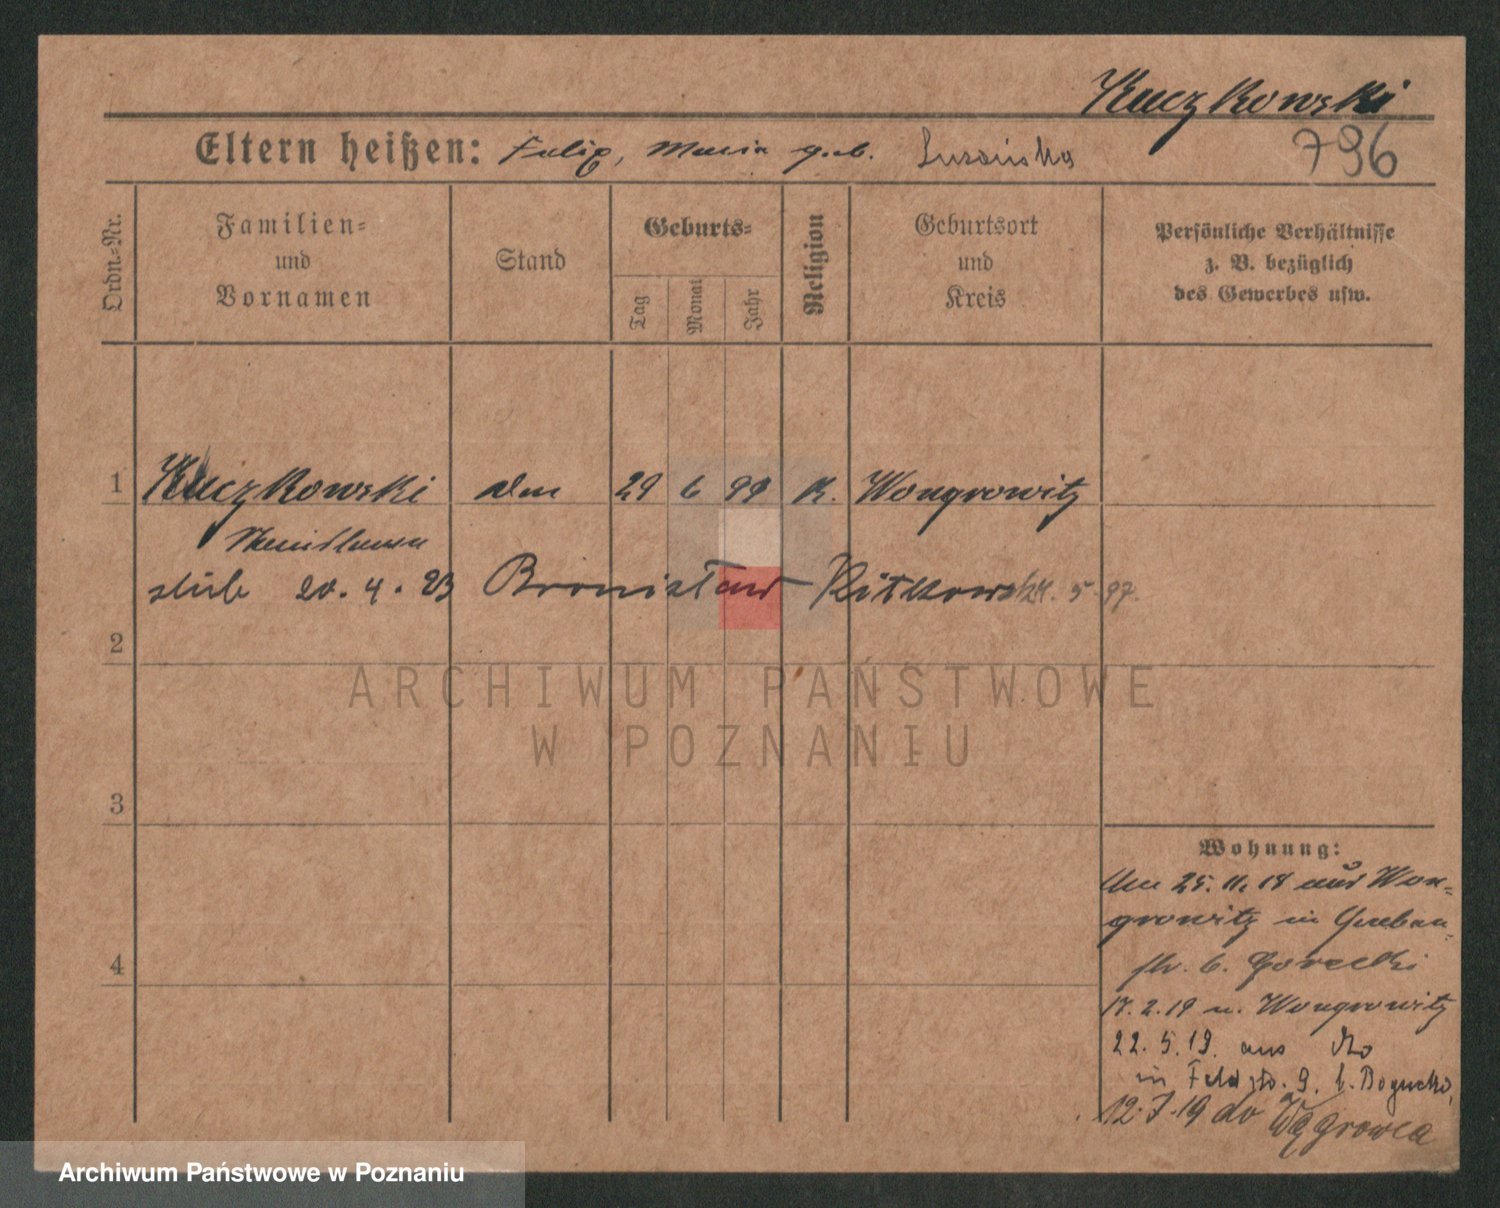 Kuczkowski
Eltern heißen: Felix, Maria geb.
796
Ordn.-Nr.
Familien-
und
Vornamen
Stand
Geburts-
Tag
Monat
Jahr
Religion
Geburtsort
und
Kreis
Persönliche Verhältnisse
z. B. bezüglich
des Gewerbes usw.
1 Kuczkowski 29 6 99 K. Wongrowitz
20. 4. 23 Bronisław 5. 97.
2
ARCHIWUM PAŃSTWOWE
W POZNANIU
3
Wohnung:
25. 11. 18 aus Won-
growitz in
4
b. Gorecki
17. 2. 19 n. Wongrowitz
22. 5. 19. aus
in Feldstr. 9. b.
12. 7. 19 do Wągrowca
Archiwum Państwowe w Poznaniu